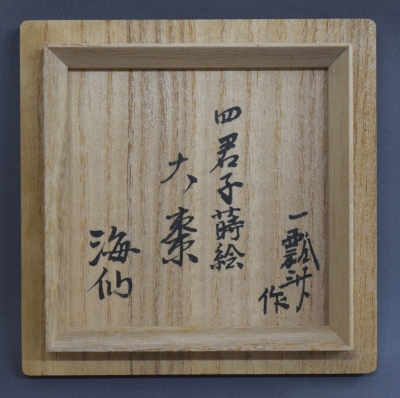 一瓢斎
作
四君子蒔絵
大棗
海仙